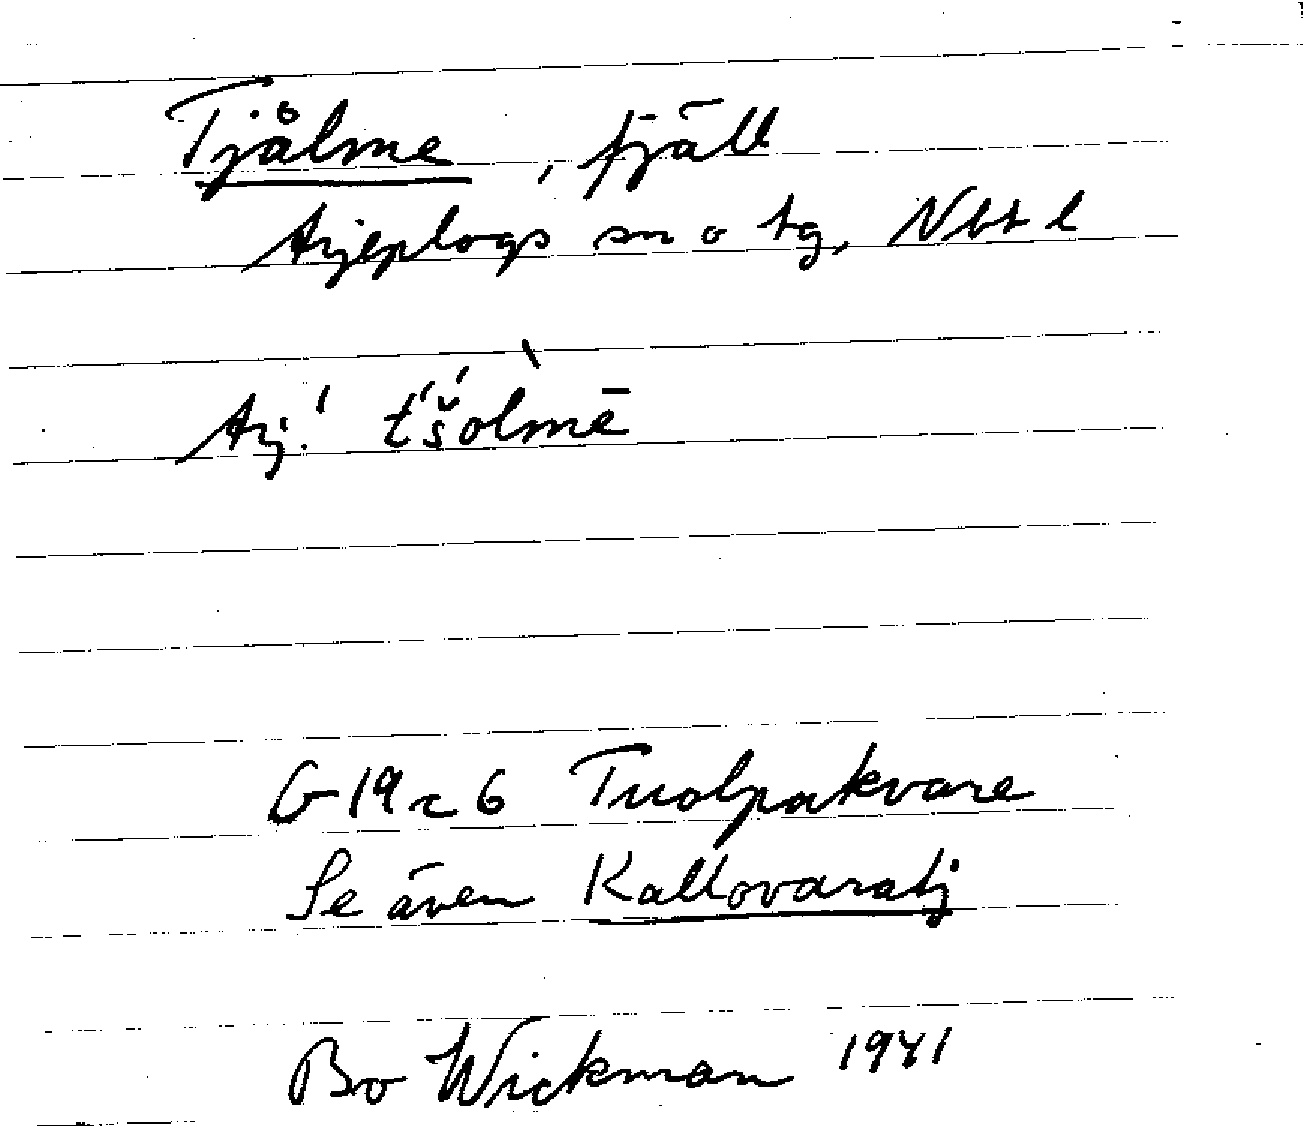 Tjålme, fjäll
Arjeplogs sn o tg, Nbt l
Arj.' t́'š́olmē
G 19 c 6 Tuolpakvare
Se även Kallovaratj
Bo Wickman 1941